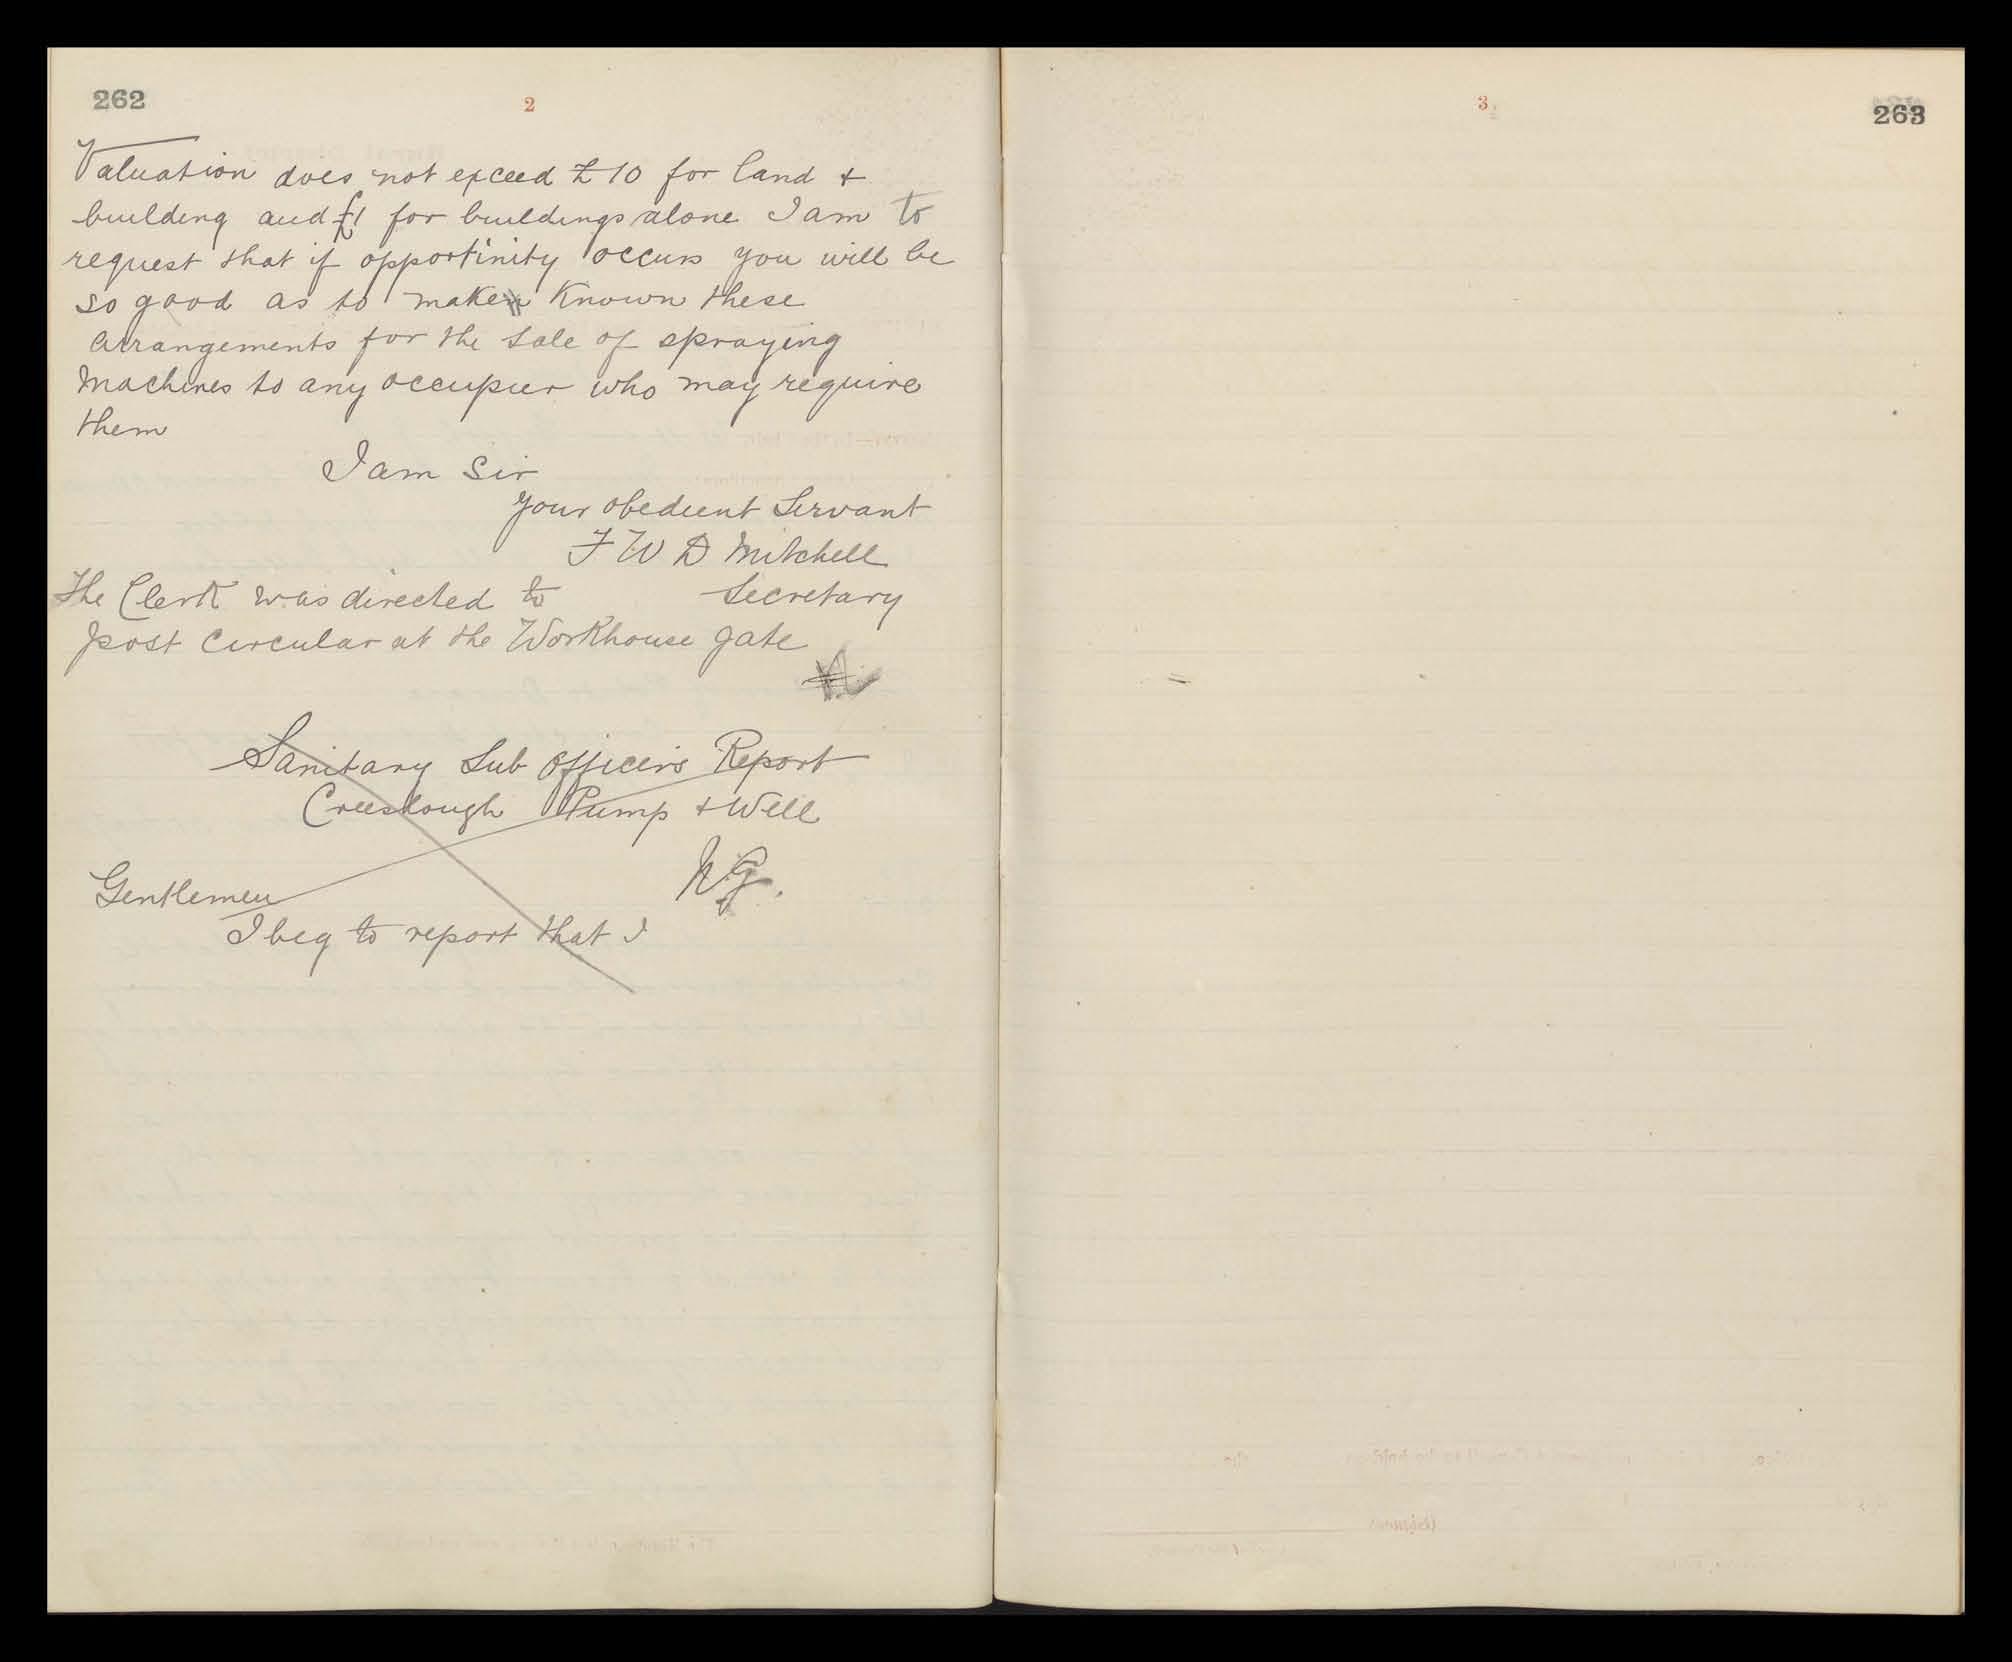 262
2
Valuation does not exceed £10 for land +
building and £1 for buildings alone I am to
request that if opportinity occurs you will be
so good as to make known these
arrangements for the sale of spraying
Machines to any occupier who may require
them
I am Sir
Your obedient Servant
F W D Mitchell
Secretary
The Clerk was directed to
post circular at the Workhouse gate
Sanitary Sub Officers Report
Creeslough Pump + Well
Gentlemen
I beg to report that I
3
263